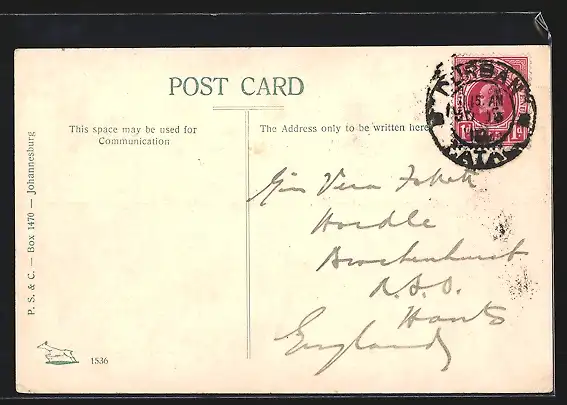 POST CARD
This space may be used for
Communication
The Address only to be written here
DURBAN
NATAL
1d
P. S. & C. — Box 1470 — Johannesburg
Miss Vera
Hordle
Brockenhurst
R.S.O.
Hants
England
1536